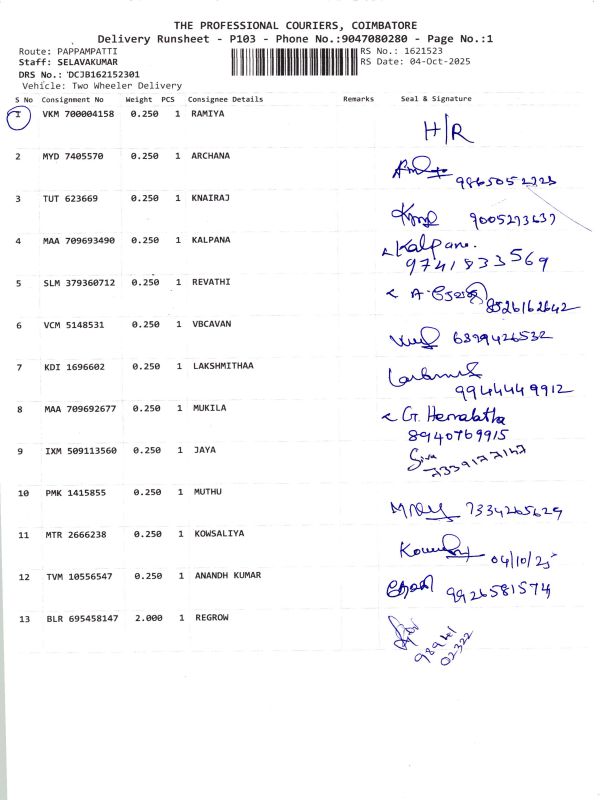 THE PROFESSIONAL COURIERS, COIMBATORE
Delivery Runsheet - P103 - Phone No.:9047080280 - Page No.:1
Route: PAPPAMPATTI
RS No.: 1621523
Staff: SELAVAKUMAR
RS Date: 04-Oct-2025
DRS No.: DCJB162152301
Vehicle: Two Wheeler Delivery
S No Consignment No Weight PCS Consignee Details Remarks Seal & Signature
1 VKM 700004158 0.250 1 RAMIYA H/R
2 MYD 7405570 0.250 1 ARCHANA
3 TUT 623669 0.250 1 KNAIRAJ 9005273637
4 MAA 709693490 0.250 1 KALPANA Kalpana.
9741833569
5 SLM 379360712 0.250 1 REVATHI 8526162642
6 VCM 5148531 0.250 1 VBCAVAN 6899426532
7 KDI 1696602 0.250 1 LAKSHMITHAA
9944449912
8 MAA 709692677 0.250 1 MUKILA G. Hemalatha
8940769915
9 IXM 509113560 0.250 1 JAYA Siva
10 PMK 1415855 0.250 1 MUTHU 7334265629
11 MTR 2666238 0.250 1 KOWSALIYA 04/10/25
12 TVM 10556547 0.250 1 ANANDH KUMAR 9926581574
13 BLR 695458147 2.000 1 REGROW
02322